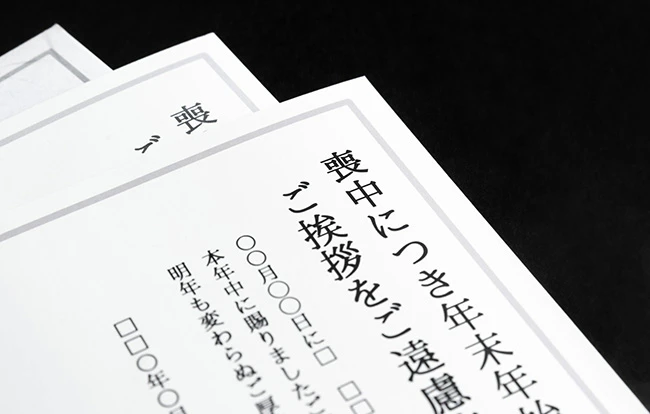 喪中につき年末年始
ご挨拶をご遠慮
〇〇月〇〇日に□　□□
本年中に賜りましたご
明年も変わらぬご厚
□□〇年〇
喪
ご